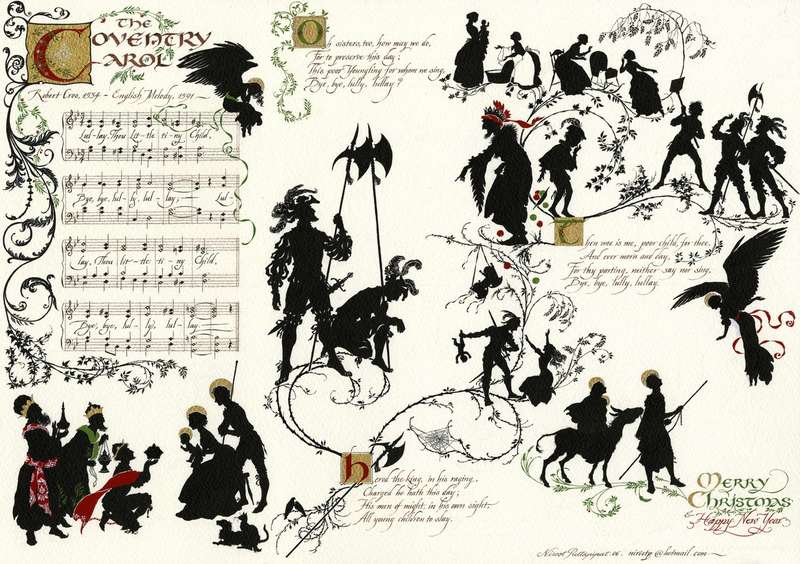 The
Coventry
Carol
Robert Croo, 1534 - English Melody, 1591
Lul-lay, Thou Lit-tle ti-ny Child,
Bye, bye, lul-ly, lul-lay, Lul-
lay, Thou lit-tle ti-ny Child,
Bye, bye, lul-ly, lul-lay.
Oh sisters, too, how may we do,
For to preserve this day;
This poor Youngling for whom we sing,
Bye, bye, lully, lullay?
Herod the king, in his raging,
Charged he hath this day;
His men of might, in his own sight,
All young children to slay.
Then woe is me, poor child, for thee,
And ever morn and day,
For thy parting, neither say nor sing,
Bye, bye, lully, lullay.
Merry
Christmas
Happy New Year
06.
@hotmail.com